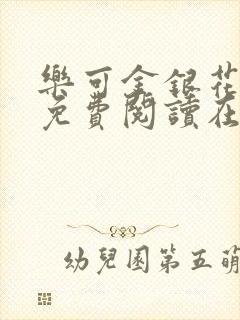 樂可金銀花
免費閱讀在
幼兒園第五萌